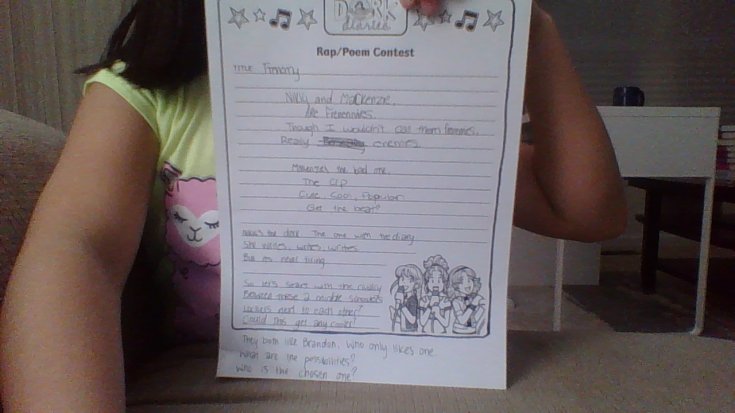 DORK
diaries
Rap/Poem Contest
TITLE: Frenemy
Nikki and MacKenzie,
Are Frenemies.
Though I wouldn't call them frenemies,
Really enemies.
MacKenzie's the bad one,
The CCP
Cute, Cool, Popular
Get the beat?
Nikki's the dork. The one with the diary
She writes, writes, writes
But its never tiring.
So let's start with the rivalry
Between these 2 middle schoolers
Lockers next to each other?
Could this get any cooler?
They both like Brandon, who only likes one.
What are the possibilities?
Who is the chosen one?